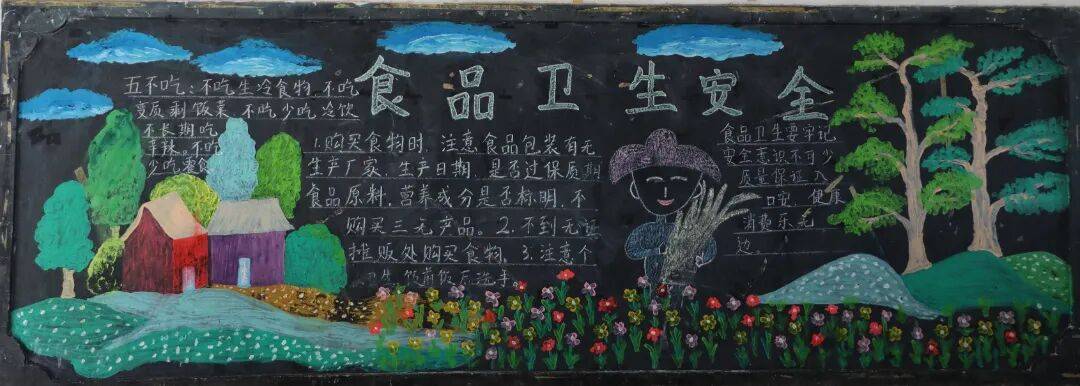 食品卫生安全
五不吃：不吃生冷食物 不吃
变质剩饭菜 不吃少吃冷饮
不长期吃
辛辣。不吃
少吃零食
1.购买食物时，注意食品包装有无
生产厂家、生产日期，是否过保质期
食品原料，营养成分是否标明，不
购买三无产品。2.不到无证
摊贩处购买食物。3.注意个
卫生，饭前饭后洗手。
食品卫生要牢记
安全意识不可少
质量保证入
口吃，健康
消费乐无
边